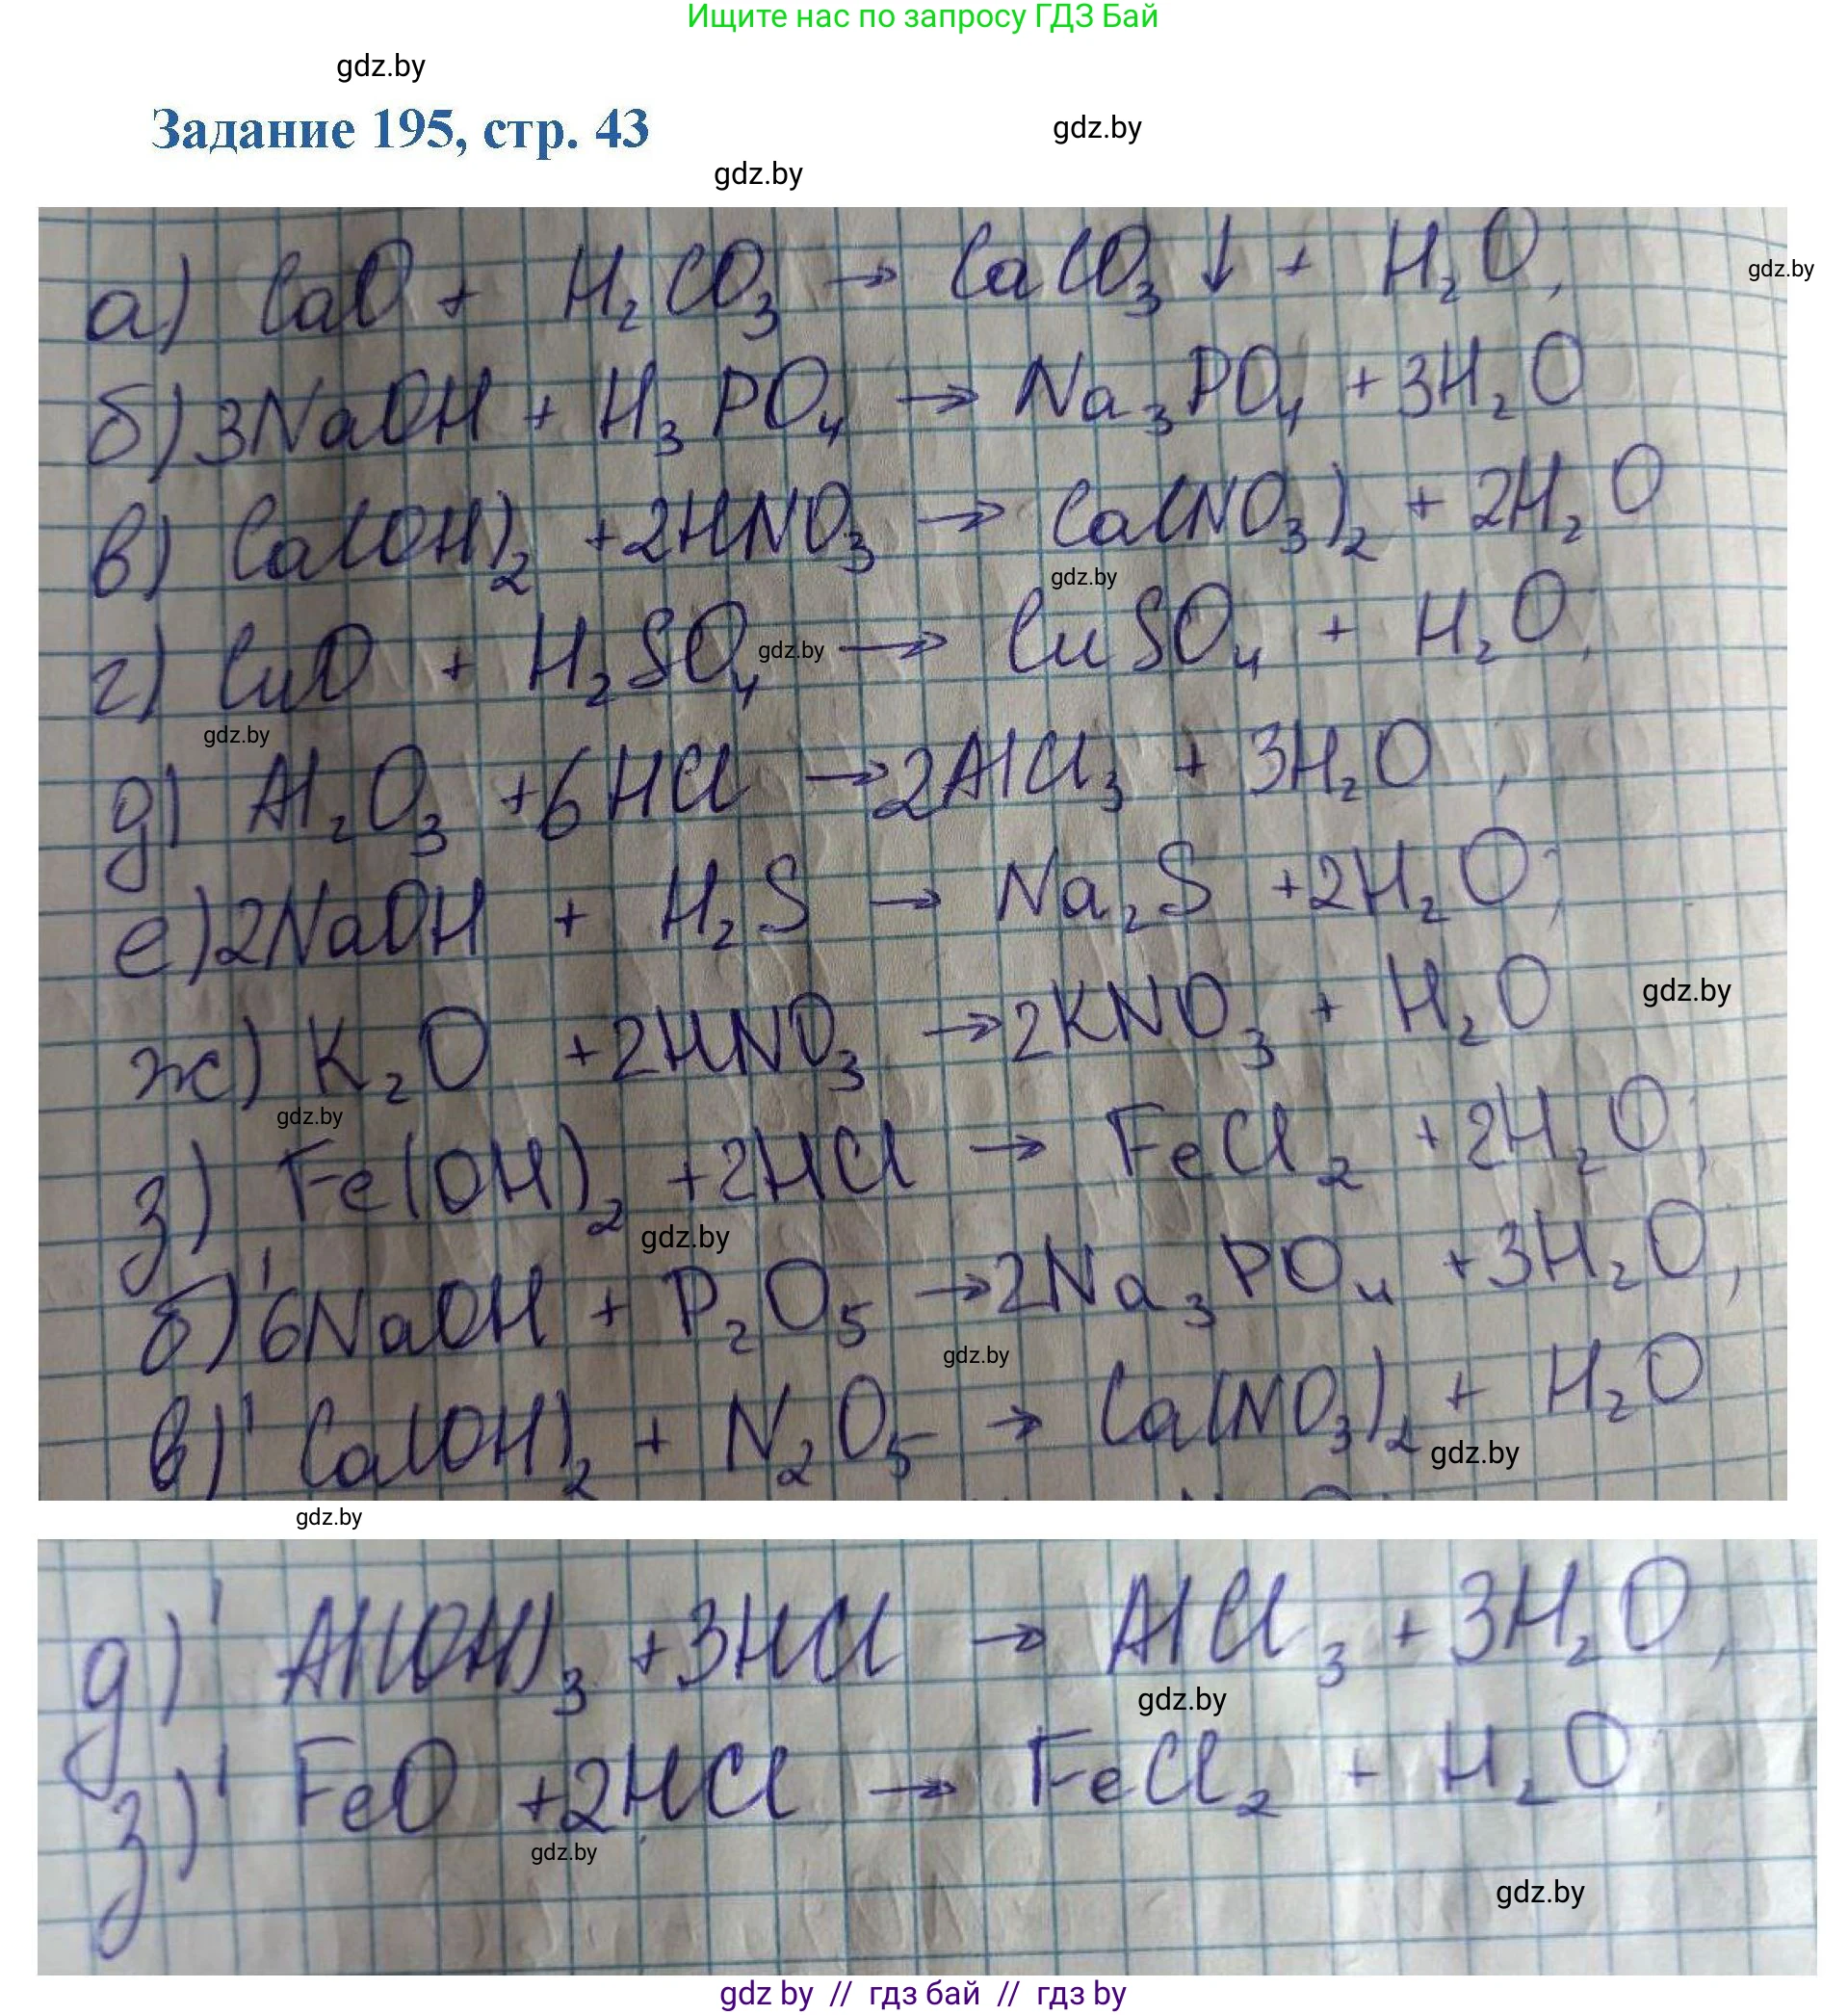 Ищите нас по запросу ГДЗ Бай
gdz.by
Задание 195, стр. 43
gdz.by
gdz.by
а) CaO + H₂CO₃ → CaCO₃ ↓ + H₂O,
gdz.by
б) 3NaOH + H₃PO₄ → Na₃PO₄ + 3H₂O
в) Ca(OH)₂ + 2HNO₃ → Ca(NO₃)₂ + 2H₂O
gdz.by
г) CuO + H₂SO₄ → CuSO₄ + H₂O,
gdz.by
gdz.by
д) Al₂O₃ + 6HCl → 2AlCl₃ + 3H₂O,
е) 2NaOH + H₂S → Na₂S + 2H₂O;
gdz.by
ж) K₂O + 2HNO₃ → 2KNO₃ + H₂O
gdz.by
з) Fe(OH)₂ + 2HCl → FeCl₂ + 2H₂O;
gdz.by
б)' 6NaOH + P₂O₅ → 2Na₃PO₄ + 3H₂O,
gdz.by
в)' Ca(OH)₂ + N₂O₅ → Ca(NO₃)₂ + H₂O
gdz.by
gdz.by
д)' Al(OH)₃ + 3HCl → AlCl₃ + 3H₂O,
gdz.by
з)' FeO + 2HCl → FeCl₂ + H₂O;
gdz.by
gdz.by
gdz by // гдз бай // гдз by